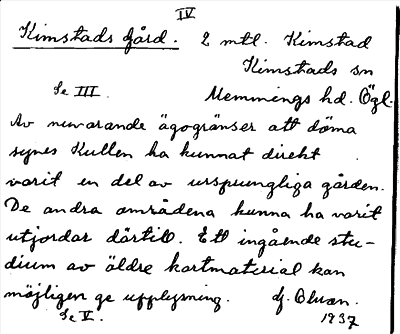 IV
Kimstads gård. 2 mtl. Kimstad
Kimstads sn
Se III. Memmings hd. Ögl.
Av nuvarande ägogränser att döma
synes Kullen ha kunnat direkt
varit en del av ursprungliga gården.
De andra områdena kunna ha varit
utjordar därtill. Ett ingående stu-
dium av äldre kartmaterial kan
möjligen ge upplysning.
Se V. 1937